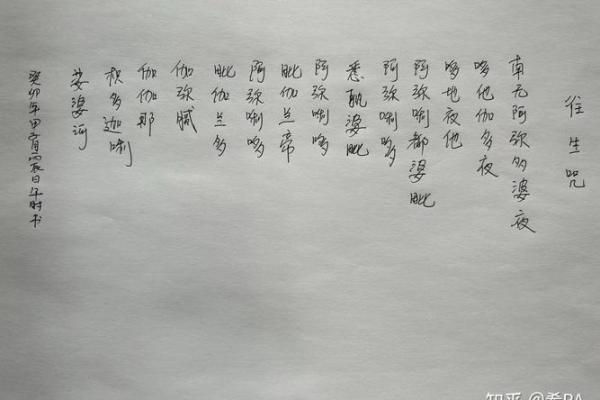 往生咒
南无阿弥多婆夜
哆他伽多夜
哆地夜他
阿弥唎都婆毗
阿弥唎哆
悉耽婆毗
阿弥唎哆
毗伽兰帝
阿弥唎哆
毗伽兰多
伽弥腻
伽伽那
枳多迦唎
娑婆诃
癸卯年甲子月丙辰日午时书
知乎 @希BA